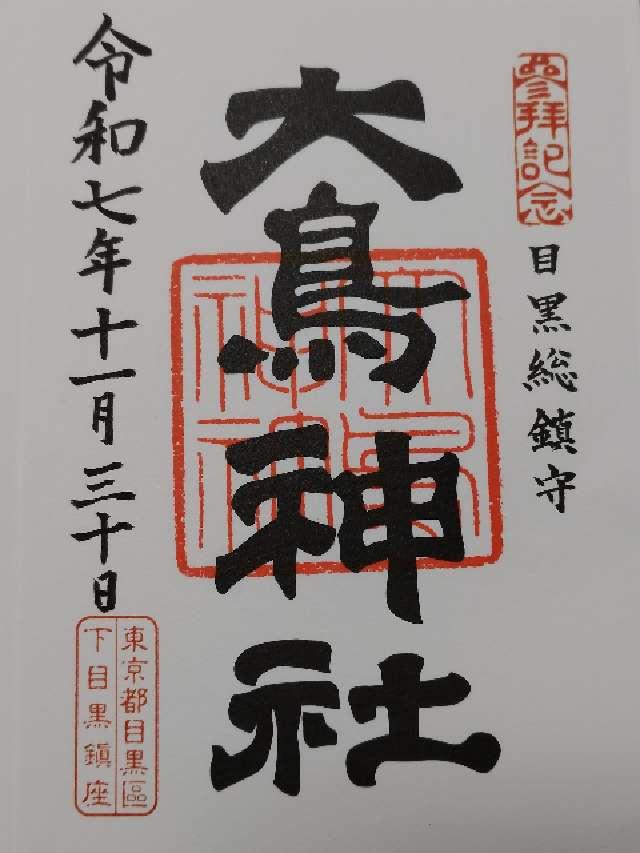 參拝記念
目黒総鎮守
大鳥神社
令和七年十一月三十日
東京都目黒區
下目黒鎮座